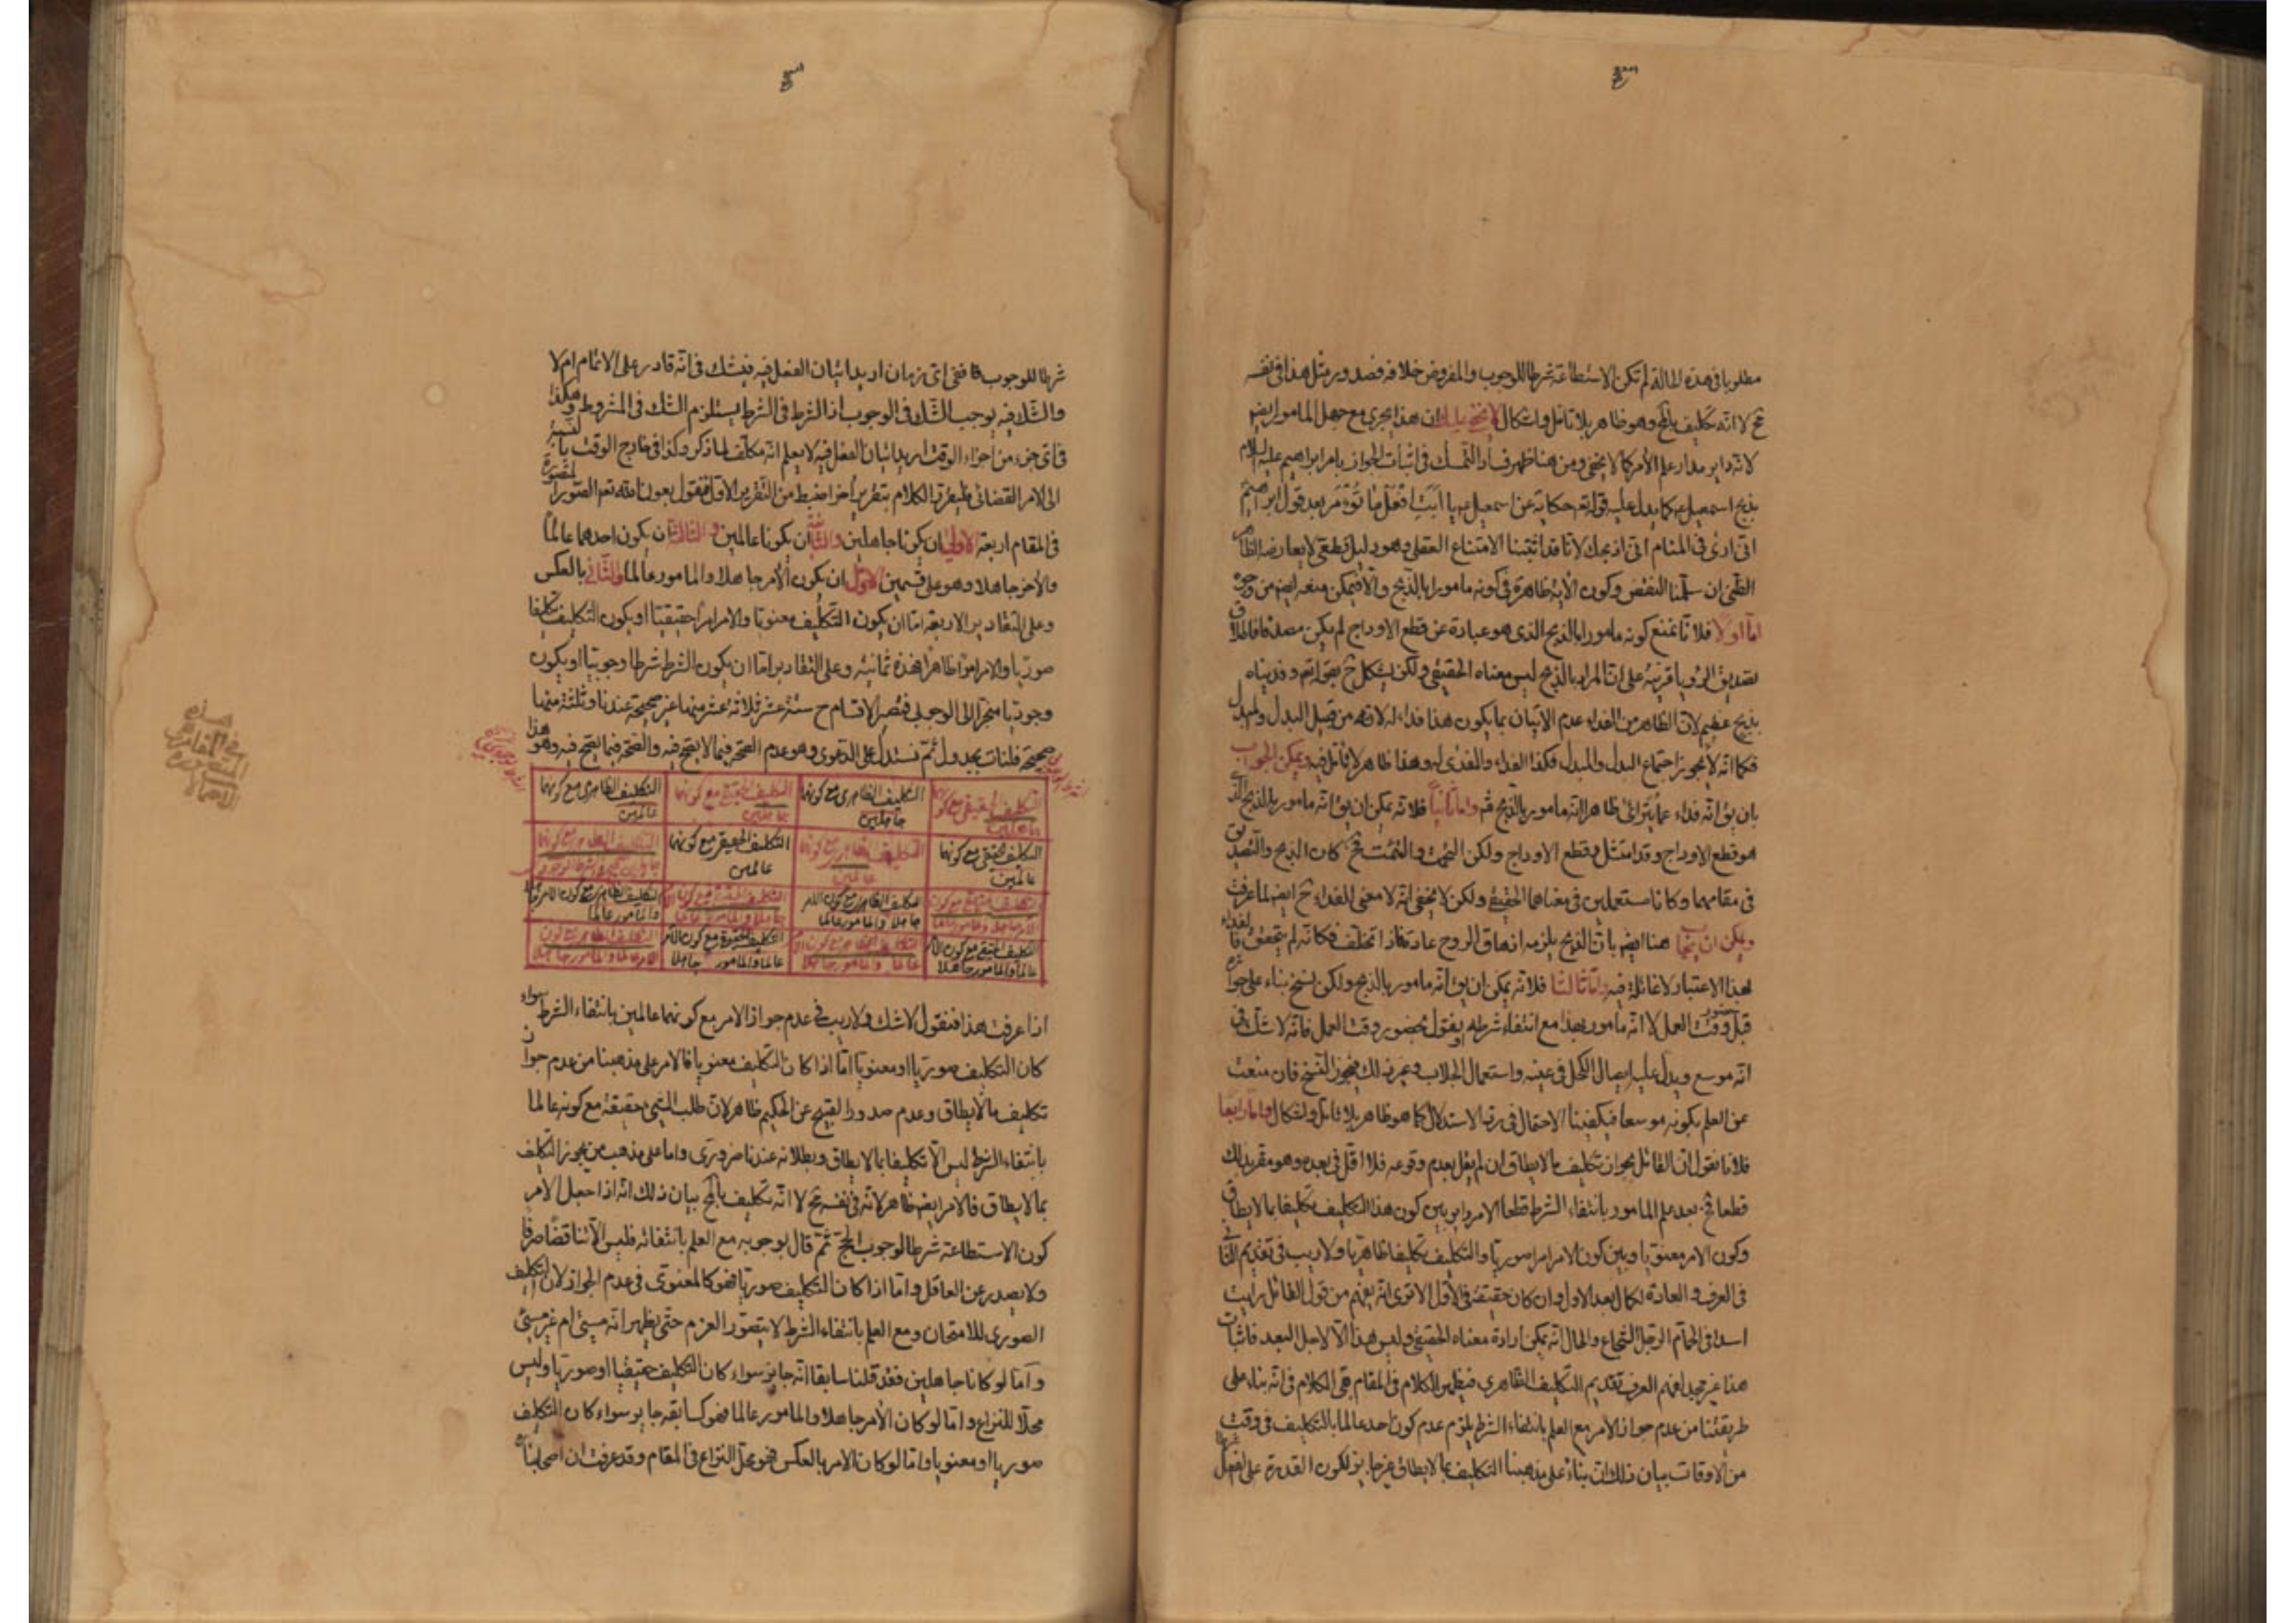 مطلوبا فى هذه الحالة لم تكن الاستطاعة شرطا للوجوب والمفروض خلافه فصدور مثل هذا فى نفسه
مح لا انه تكليف بالمح وهو ظاهر بلا تامل واشكال لا يخفى عليك ان هذا يجرى مع جهل المامور ايضا
لانه داير مدار علم الآمر كما لا يخفى ومن هنا ظهر فساد التمسك فى اثبات الجواز بامر ابراهيم عليه السلام
بذبح اسمعيل كما يدل عليه قوله تعم حكاية عن اسمعيل يا ابت افعل ما تؤمر بعد قول ابراهيم
انى ارى فى المنام انى اذبحك لانا قد اثبتنا الامتناع العقلى وهو دليل قطعى لا يعارضه الظاهر
الظنى ان سلمنا النقض وكون الآية ظاهرة فى كونه مامورا بالذبح والا فيمكن منعه ايضا من وجوه
اما اولا فلانا نمنع كونه مامورا بالذبح الذى هو عبارة عن قطع الاوداج لم يكن مصدقا فاطلاق
تصديق الرؤيا قرينة على ان المراد بالذبح ليس معناه الحقيقى ولكن يشكل ح بقوله تعم وفديناه
بذبح عظيم لان الظاهر من الفداء عدم الاتيان بما يكون هذا فداء له لانه من قبيل البدل والمبدل
فكما انه لا يجوز اجتماع البدل والمبدل فكذا الفداء والفدى له وهذا ظاهر لا تامل فيه ويمكن الجواب
بان يق انه فداء عما يترائى ظاهرا انه مامور بالذبح واما ثانيا فلانه يمكن ان يق انه مامور بالذبح الذى
هو قطع الاوداج وقد امتثل وقطع الاوداج ولكن التحمت والتئمت فح كان الذبح والتصديق
فى مقامهما وكانا مستعملين فى معناهما الحقيقى ولكن لا يخفى انه لا معنى للفداء ح ايضا لما عرفت
ويمكن ان يجاب هنا ايضا بان الذبح يلزمه ازهاق الروح عادة فاذا تخلف فكانه لم يتحقق فالفداء
بهذا الاعتبار لا غائلة فيه واما ثالثا فلانه يمكن ان يق انه مامور بالذبح ولكن نسخ بناء على جوازه
قبل حضور وقت العمل لا انه مامور بهذا مع انتفاء شرطه او نقول بحضور وقت العمل فانه لا شك فى
انه موسع ويدل عليه ايصال الكحل فى عينه واستعمال الجلاب وغير ذلك فيجوز النسخ فان منعت
عن العلم بكونه موسعا فيكفينا الاحتمال فى رد الاستدلال كما هو ظاهر بلا تامل واشكال واما رابعا
فلانا نقول ان القائل بجواز تكليف ما لا يطاق ان لم يقل بعدم وقوعه فلا اقل فى بعده وهو مقر بذلك
قطعا فح بعد علم المامور بانتفاء الشرط قطعا الامر داير بين كون هذا التكليف تكليفا بما لا يطاق
وكون الامر معنويا وبين كون الامر امرا صوريا والتكليف تكليفا ظاهريا ولا ريب فى تقديم الثانى
فى العرف والعادة لكمال بعد الاول وان كان حقيقة فى الاول الا ترى انه يفهم من قول القائل رايت
اسدا فى الحمام الرجل الشجاع والحال انه يمكن ارادة معناه الحقيقى وليس هذا الا لاجل البعد فاثبات
هذا غير مجد لفهم العرف تقديم التكليف الظاهرى فيظهر الكلام فى المقام بقى الكلام فى انه بناء على
طريقتنا من عدم جواز الامر مع العلم بانتفاء الشرط يلزم عدم كون احد عالما بالتكليف فى وقت
من الاوقات بيان ذلك ان بناء على مذهبنا التكليف بما لا يطاق غير جايز لكون القدرة على الفعل
شرطا للوجوب فاذن فى اى زمان اريد اتيان الفعل فيه فيشك فى انه قادر على الاتمام ام لا
والشك فيه يوجب الشك فى الوجوب اذ الشك فى الشرط يستلزم الشك فى المشروط وهكذا
فى اى جزء من اجزاء الوقت اريد اتيان الفعل فيه لا يعلم انه مكلف لما ذكر وكذا فى خارج الوقت بالنسبة
الى الامر القضائى فليقرر الكلام بتقرير آخر اضبط من التقرير الاول فنقول بعون الله تعم الصور المتصورة
فى المقام اربعة الاولى ان يكونا جاهلين والثانية ان يكونا عالمين والثالثة ان يكون احدهما عالما
والآخر جاهلا وهو على قسمين الاول ان يكون الآمر جاهلا والمامور عالما والثانى بالعكس
وعلى التقادير الاربعة اما ان يكون التكليف معنويا والامر امرا حقيقيا او يكون التكليف تكليفا
صوريا والامر امرا ظاهرا فهذه ثمانية وعلى التقادير اما ان يكون الشرط شرطا وجوبيا او يكون
وجوديا منجرا الى الوجوبى فيصير الاقسام ح ستة عشر ثلاثة عشر منها غير صحيحة عندنا وثلثة منها
صحيحة فلنات بجدول ثم نستدل على الدعوى وهو عدم الصحة فيما لا يصح فيه والصحة فيما يصح فيه وهو هذا
التكليف الحقيقى مع كونهما جاهلين
التكليف الظاهرى مع كونهما جاهلين
التكليف الحقيقى مع كونهما جاهلين
التكليف الظاهرى مع كونهما عالمين
التكليف الحقيقى مع كونهما عالمين
التكليف الظاهرى مع كونهما عالمين
التكليف الحقيقى مع كونهما عالمين
التكليف الظاهرى مع كونهما
التكليف الحقيقى مع كون الآمر جاهلا والمامور عالما
التكليف الظاهرى مع كون الآمر جاهلا والمامور عالما
التكليف الحقيقى مع كون الآمر جاهلا والمامور عالما
التكليف الظاهرى مع كون الآمر جاهلا والمامور عالما
التكليف الحقيقى مع كون الآمر عالما والمامور جاهلا
التكليف الظاهرى مع كون الآمر عالما والمامور جاهلا
التكليف الحقيقى مع كون الآمر عالما والمامور جاهلا
التكليف الظاهرى مع كون الآمر عالما والمامور جاهلا
اذا عرفت هذا فنقول لا شك ولا ريب فى عدم جواز الامر مع كونهما عالمين بانتفاء الشرط سواء
كان التكليف صوريا او معنويا اما اذا كان التكليف معنويا فالامر على مذهبنا من عدم جواز
تكليف ما لا يطاق وعدم صدور القبيح عن الحكيم ظاهر لان طلب الشىء حقيقة مع كونه عالما
بانتفاء الشرط ليس الا تكليفا بما لا يطاق وبطلانه عندنا ضرورى واما على مذهب من يجوز التكليف
بما لا يطاق فالامر ايضا ظاهر لانه فى نفسه مح لا انه تكليف بالمح بيان ذلك انه اذا جعل الآمر
كون الاستطاعة شرطا لوجوب الحج ثم قال بوجوبه مع العلم بانتفائه فليس الا تناقضا صرفا
ولا يصدر عن العاقل واما اذا كان التكليف صوريا فهو كالمعنوى فى عدم الجواز لان التكليف
الصورى للامتحان ومع العلم بانتفاء الشرط لا يتصور العزم حتى يظهر انه مسئ ام غير مسئ
واما لو كانا جاهلين فقد قلنا سابقا انه جايز سواء كان التكليف حقيقيا او صوريا وليس
محلا للنزاع واما لو كان الآمر جاهلا والمامور عالما فهو كسابقه جايز سواء كان التكليف
صوريا او معنويا واما لو كان الامر بالعكس فهو محل النزاع فى المقام وقد عرفت ان اصحابنا
هذه
هى
المقامر
المتصورة
الاحمال